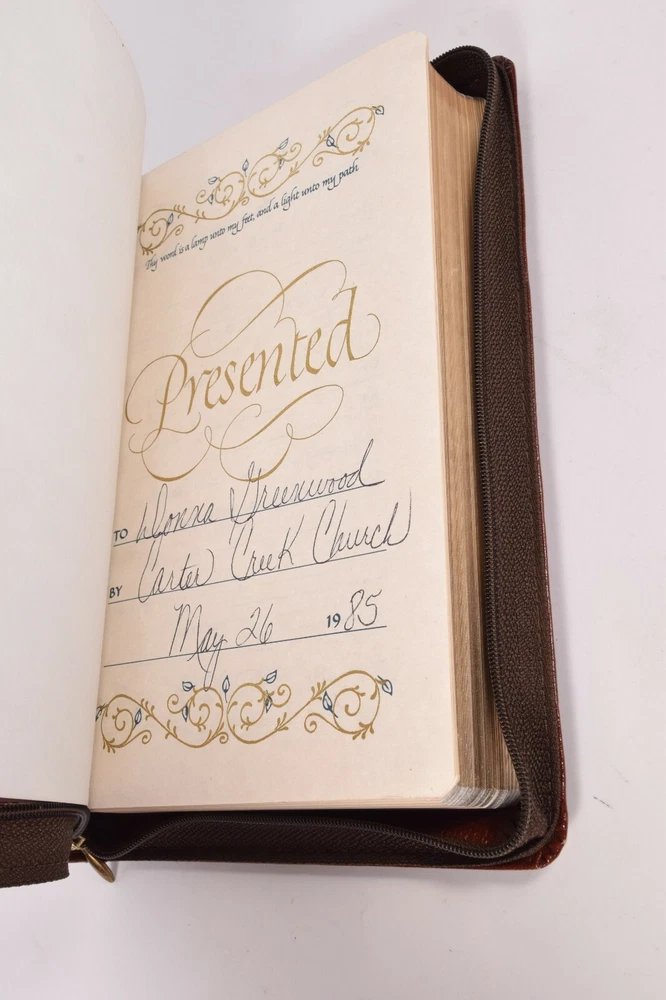 Thy word is a lamp unto my feet, and a light unto my path
Presented
TO Donna Greenwood
BY Carter Creek Church
May 26 1985